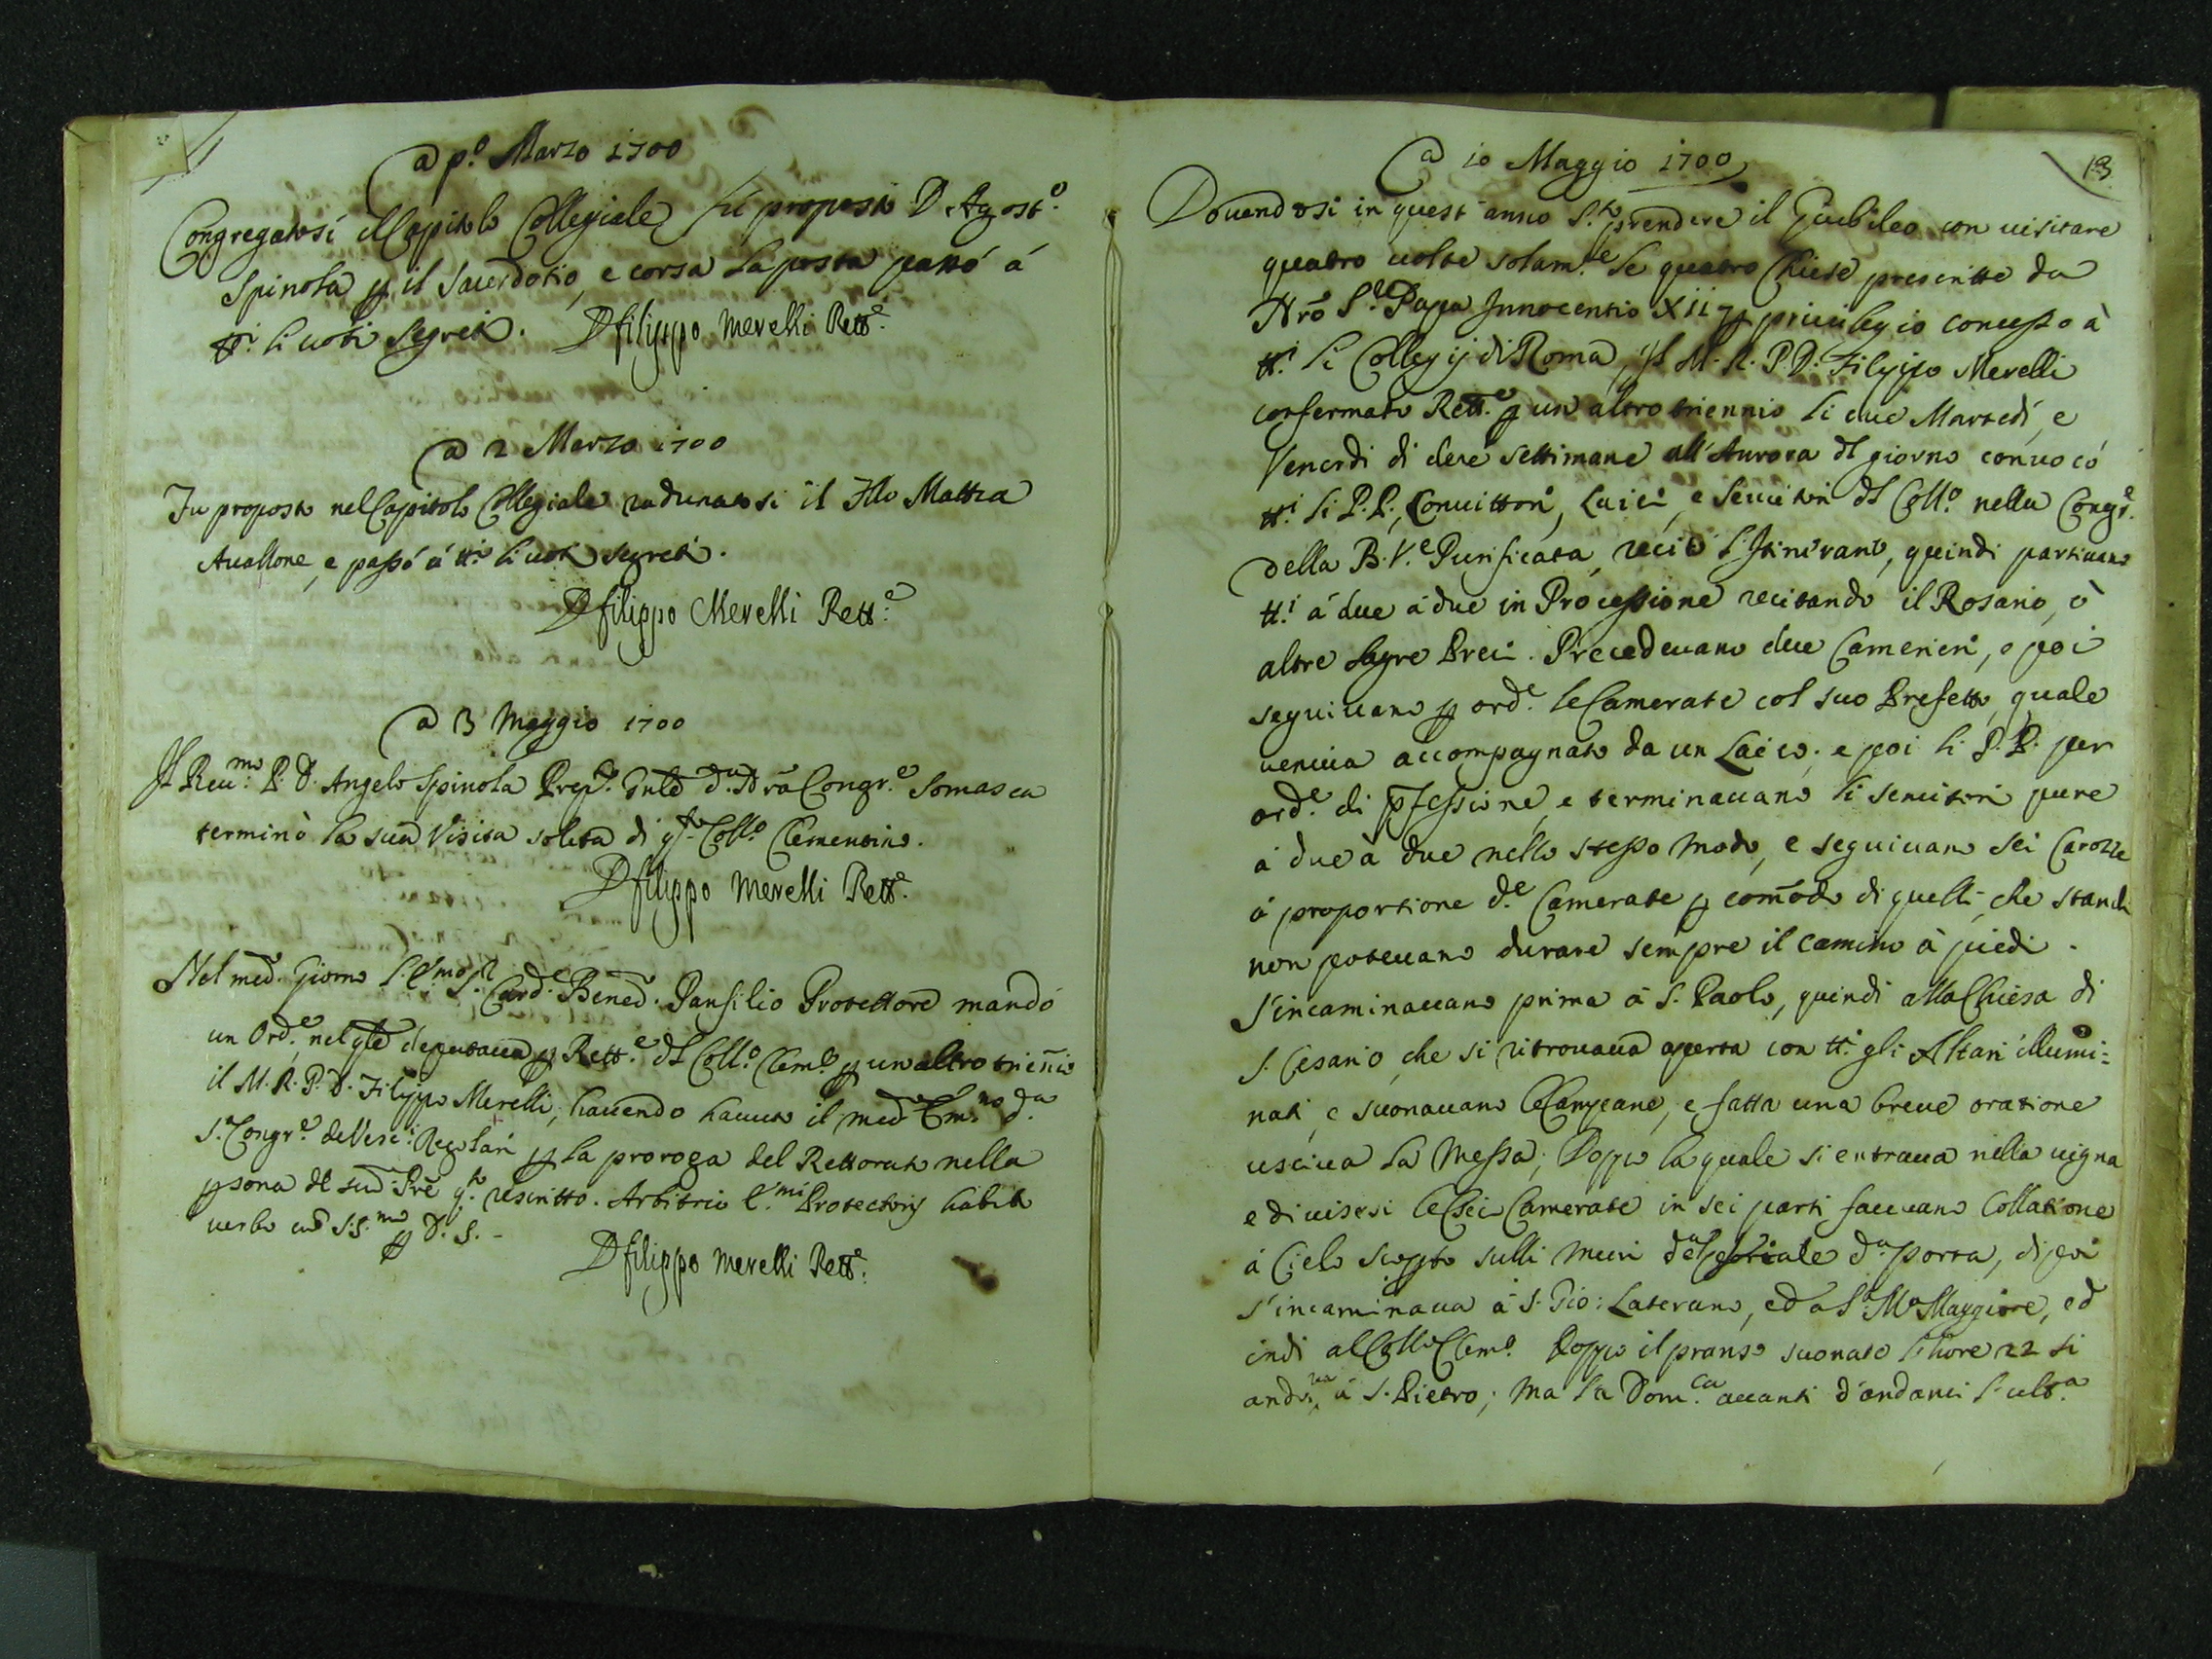 a p.º Marzo 1700
Congregatosi il Capitolo Collegiale fù proposto D. Agost.º
Spinola p il Sacerdotio, e corsa la posta passò à
tt.i li voti segreti. D filippo Merelli Rett.e
a 2 Marzo 1700
Fu proposto nel Capitolo Collegiale radunatosi il Fllo Mattia
Auallone, e passò à tt.i li uoti segreti.
D filippo Merelli Rett.e
a 3 Maggio 1700
Il Reu.mo P. D. Angelo Spinola Prep. Gnle d.a Nrã Congr.e Somasca
terminò la sua Visita solita di q.to Coll.o Clementino.
D filippo Merelli Rett.e
Nel med. Giorno l'E.mo S. Card. Bened. Panfilio Protettore mandò
un Ord.e, nel qle deputaua p Rett.e dl Coll.o Clem.o p un altro trieñio
il M. R. P. D. Filippo Merelli, hauendo hauuto il med. Em.mo d.a
S. Congr.e de Vesc.i Regolari p la proroga del Rettorato nella
psona dl sud. Pre q.to rescritto. Arbitrio E.mi Protectoris habito
uerbo cũ S.S.mo p D. S. -
D filippo Merelli Rett.e
13
a 10 Maggio 1700
Douendosi in quest'anno S.to prendere il Giubileo con uisitare
quatro uolte solam.te le quatro Chiese prescritte da
Nrõ S.re Papa Innocentio XII p priuilegio concesso à
tt.i li Collegij di Roma, Il M. R. P. D. Filippo Merelli
confermato Rett.e p un altro triennio li due Martedì, e
Venerdi di due settimane all'Aurora dl giorno conuocò
tt.i li P.P., Conuittori, Laici, e Seruitori dl Coll.o nella Congr.e
della B. V.e Purificata, recitò l'Itinerario, quindi partiuano
tt.i à due à due in Processione recitando il Rosario, ò
altre Sagre Preci. Precedeuano due Camerieri, e poi
seguiuano p ord.e le Camerate col suo Prefetto, quale
ueniua accompagnato da un Laico; e poi li P.P. per
ord.e di pfessione, e terminauano li seruitori pure
à due à due nello stesso modo, e seguiuano sei Carozze
à proportione d.e Camerate p comõdo di quelli, che stanchi
non poteuano durare sempre il camino à piedi.
S'incaminauano prima à S. Paolo, quindi alla Chiesa di
S. Cesario, che si ritrouaua aperta con tt.i gli Altari illumi:
nati, e suonauano le Campane, e fatta una breue oratione
usciua la Messa; Doppo la quale si entraua nella uigna
e diuisesi le sei Camerate in sei parti faceuano Collatione
à Cielo scoperto sulli muri d.a d.a porta, di poi
s'incaminaua à S. Gio: Laterano, ed a S.a M.a Maggiore, ed
indi al Coll.o Clem.o Doppo il pranso suonate l'hore 22 si
andaua à S. Pietro; ma la Dom.ca auanti d'andarui l'ult.a